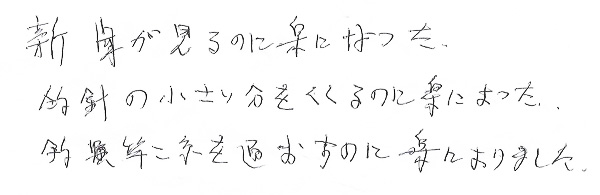 新聞が見るのに楽になつた.
釣針の小さい分をくくるのに楽になつた..
釣竿に糸を通おすのに楽になりました.